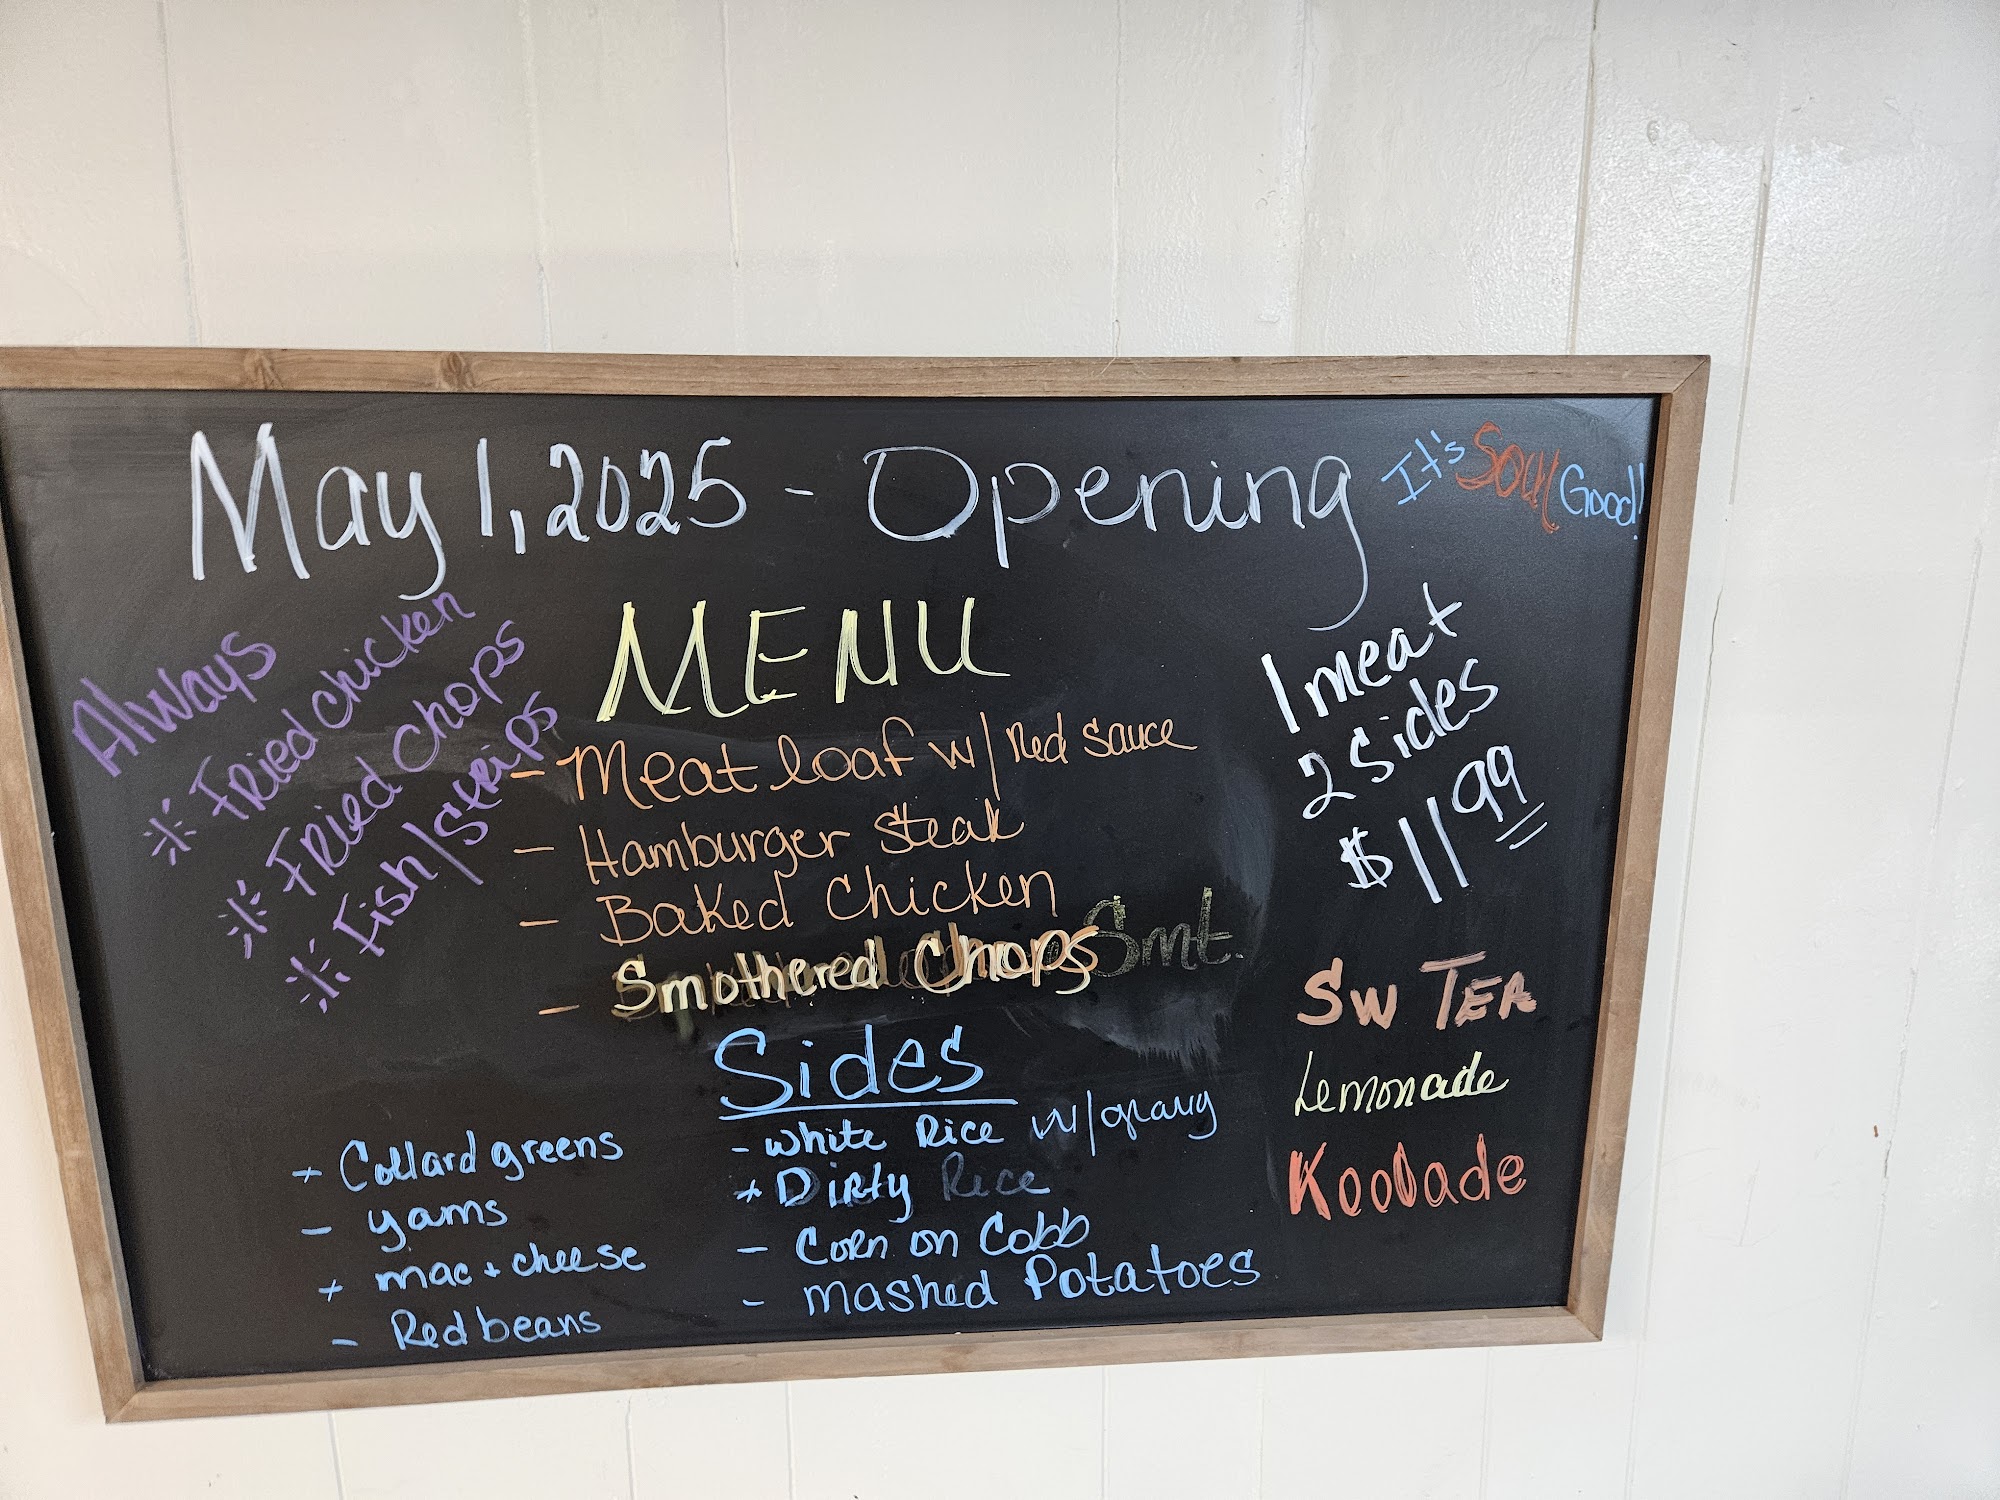 May 1, 2025 - Opening
It's Soul Good!!
Always
Fried chicken
Fried chops
Fish/strips
MENU
- Meatloaf w/ Red sauce
- Hamburger steak
- Baked chicken
- Smothered Chops Smt.
1 meat
2 sides
$11.99
Sides
+ Collard greens
- yams
+ mac + cheese
- Red beans
- white Rice w/gravy
+ Dirty Rice
- Corn on Cobb
- mashed Potatoes
Sw TEA
Lemonade
Koolade